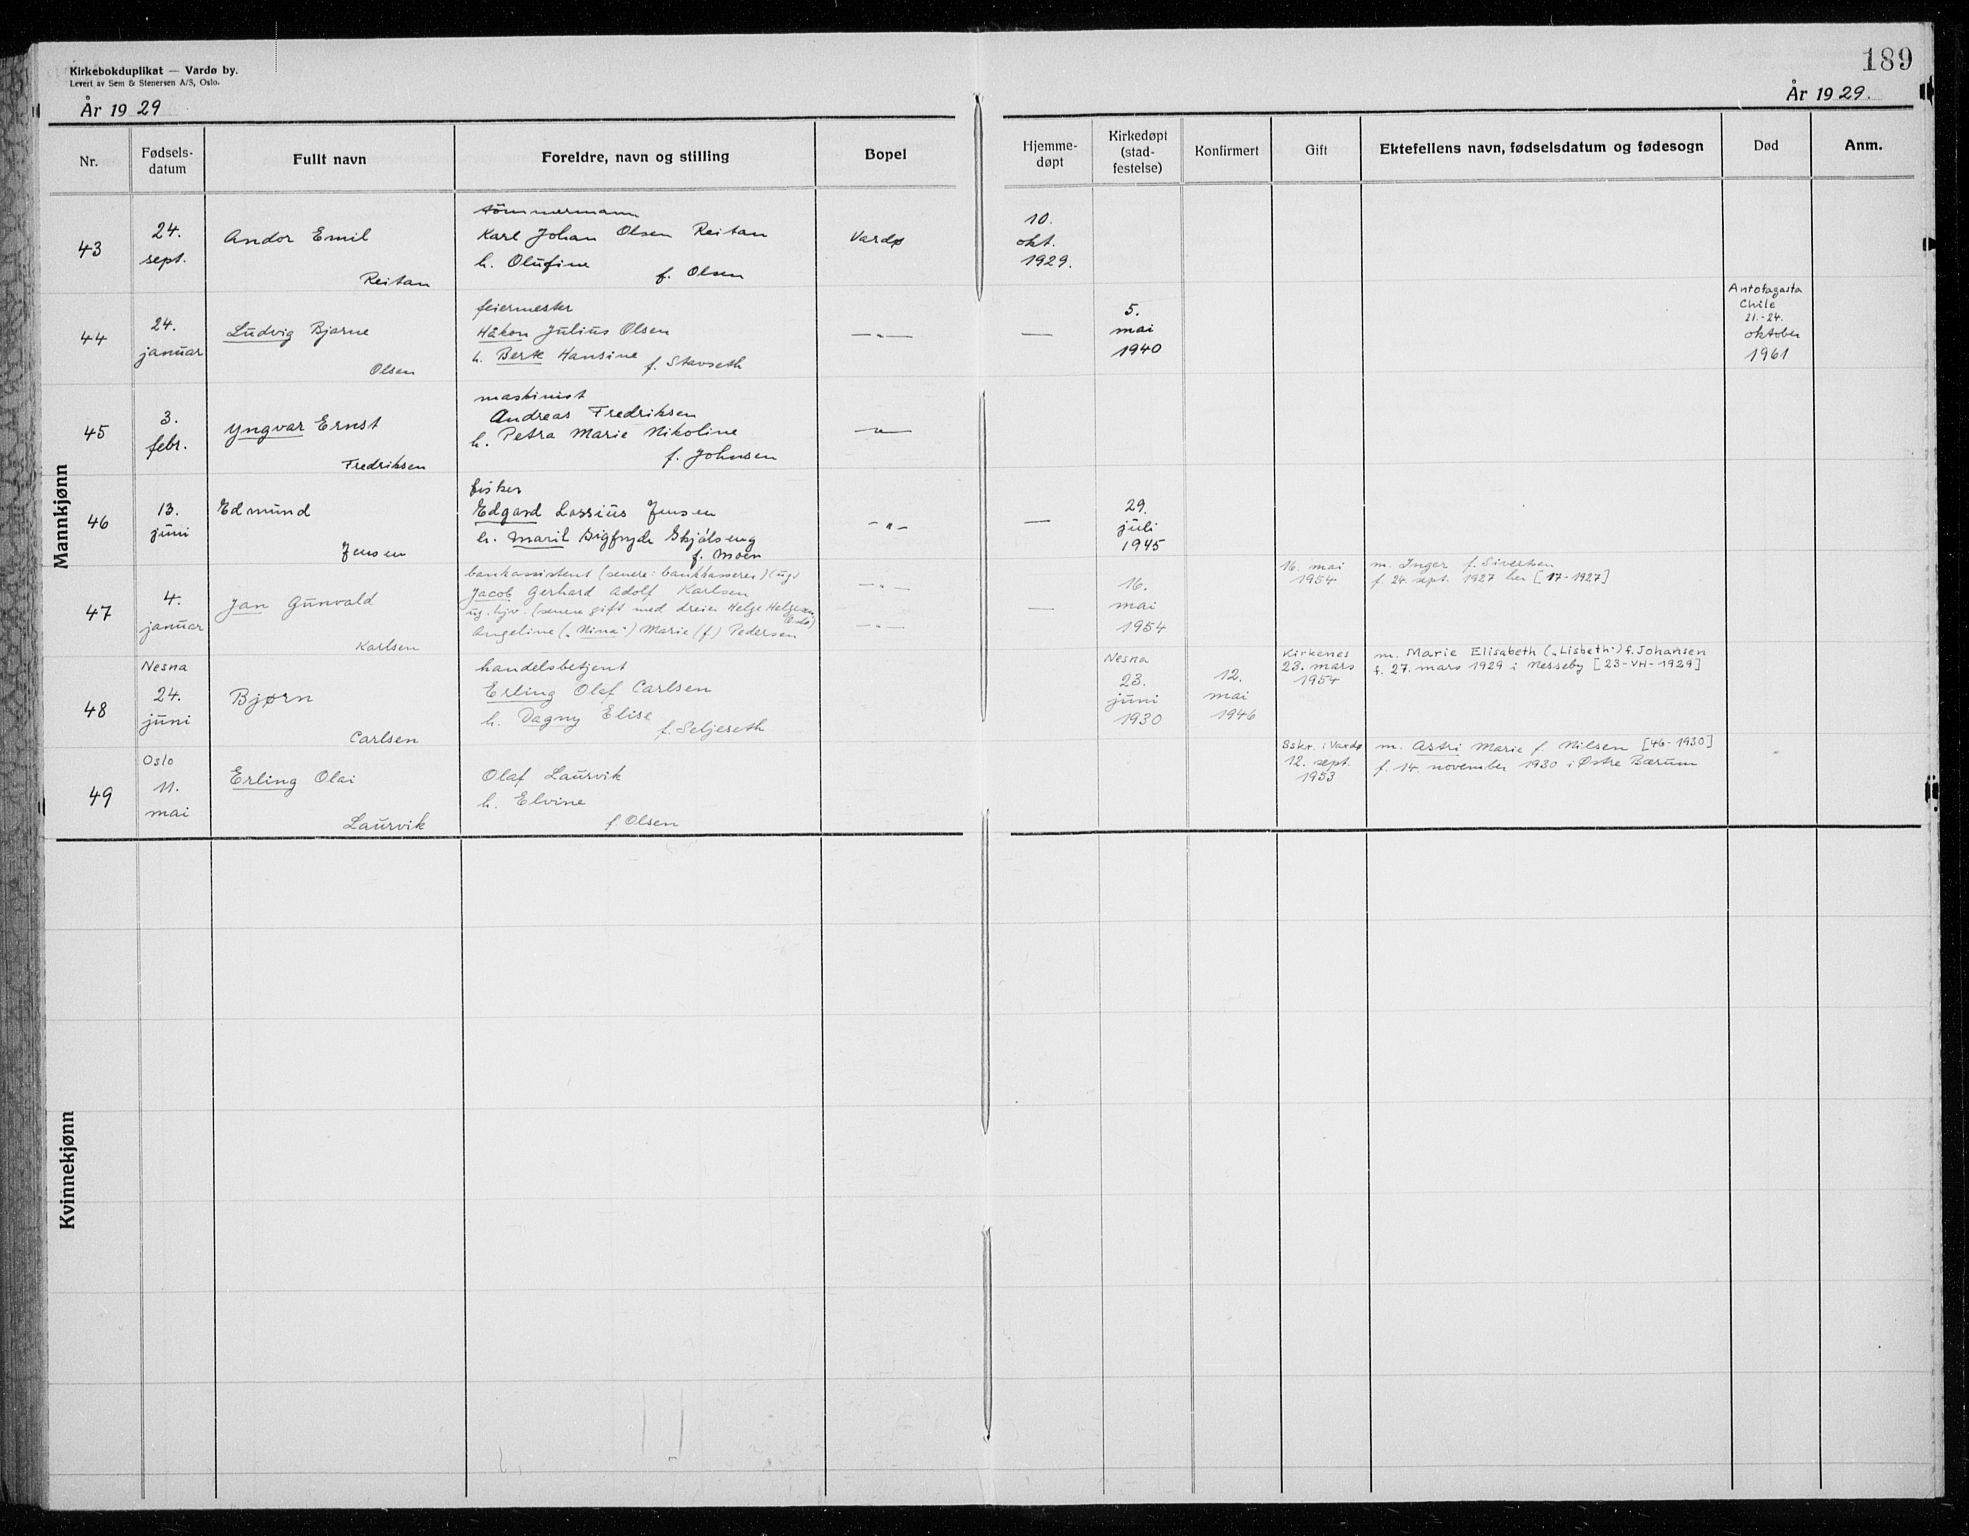 Kirkebokduplikat — Vardø by.
Levert av Sem & Stenersen A/S, Oslo.
År 1929
189
År 1929.
Nr.
Fødsels-
datum
Fullt navn
Foreldre, navn og stilling
Bopel
Hjemme-
døpt
Kirkedøpt
(stad-
festelse)
Konfirmert
Gift
Ektefellens navn, fødselsdatum og fødesogn
Død
Anm.
Mannkjønn
43
24.
sept.
Andor Emil
Reitan
tömmermann
Karl Johan Olsen Reitan
h. Olufine f. Olsen
Vardø
10.
okt.
1929.
44
24.
januar
Ludvig Bjarne
Olsen
feiermester
Håkon Julius Olsen
h. Berte Hansine f. Stavseth
—„—
—
5.
mai
1940
Antofagasta
Chile
21.-24.
oktober
1961
45
3.
febr.
Yngvar Ernst
Fredriksen
maskinist
Andreas Fredriksen
h. Petra Marie Nikoline
f. Johnsen
—„—
46
13.
juni
Edmund
Jensen
fisker
Edgard Lassius Jensen
h. Marit Sigfryde Skjólseng
f. Moen
—„—
—
29.
juli
1945
47
4.
januar
Jan Gunvald
Karlsen
bankassistent (senere: bankkasserer) (ug.)
Jacob Gerhard Adolf Karlsen
ug. hjv. (senere gift med dreier Helge Helgesen, Oslo)
Angeline („Nina") Marie (f) Pedersen
—„—
—„—
—
16.
mai
1954
16. mai
1954
m. Inger f. Sivertsen
f. 24. sept. 1927 her [17-1927]
48
Nesna
24.
juni
Bjørn
Carlsen
handelsbetjent
Erling Olaf Carlsen
h. Dagny Elise
f. Seljeseth
Nesna
23.
juni
1930
12.
mai
1946
Kirkenes
23. mars
1954
m. Marie Elisabeth („Lisbeth") f. Johansen
f. 27. mars 1929 i Nesseby [23-VH-1929]
49
Oslo
11.
mai
Erling Olai
Laurvik
Olaf Laurvik
h. Elvine
f. Olsen
Sskr. i Vardø
12. sept.
1953
m. Astri Marie f. Nilsen [46-1930]
f. 14. november 1930 i Østre Bærum
Kvinnekjønn